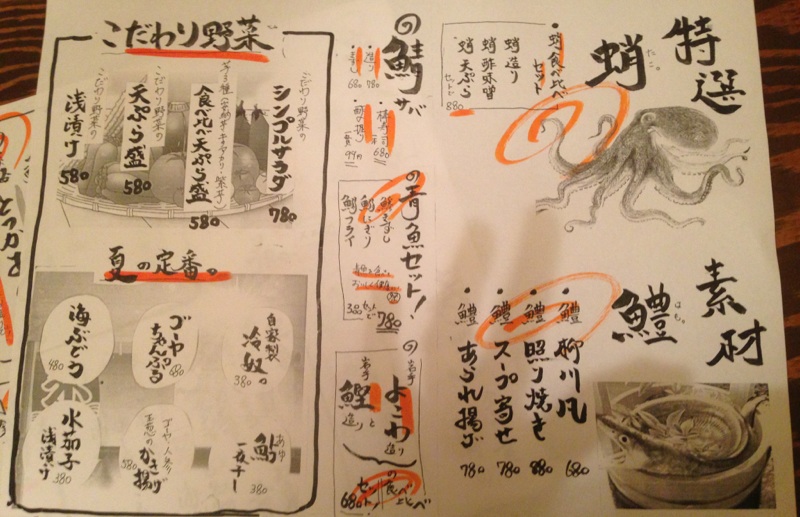 特選
素材
蛸
たこ。
・蛸食べ比べ
セット
蛸造り
蛸酢味噌
蛸天ぷら
セットで
880
鱧
はも。
・鱧柳川風 680
・鱧照り焼き 880
・鱧スープ寄せ 780
・鱧あられ揚げ 780
の鯖サバ
・造り 980
680
680
一貫 99円
の青魚セット!
鯖きずし
鯵にぎり
鰯フライ
3品セットで
780
の岩手よこわ造り
岩手鰹造りと
の食べ比べ
セット
680
こだわり野菜
こだわり野菜の
シンプルサラダ
780
食べ比べ天ぷら盛
580
こだわり野菜の
天ぷら盛
580
こだわり野菜の
浅漬け
580
夏の定番。
自家製
冷奴の
380
ゴーヤ
ちゃんぷる
680
海ぶどう
480
鮎
あゆ
一夜干し
380
ゴーヤ・人参・
玉葱の
かき揚げ
580
水茄子
浅漬け
380